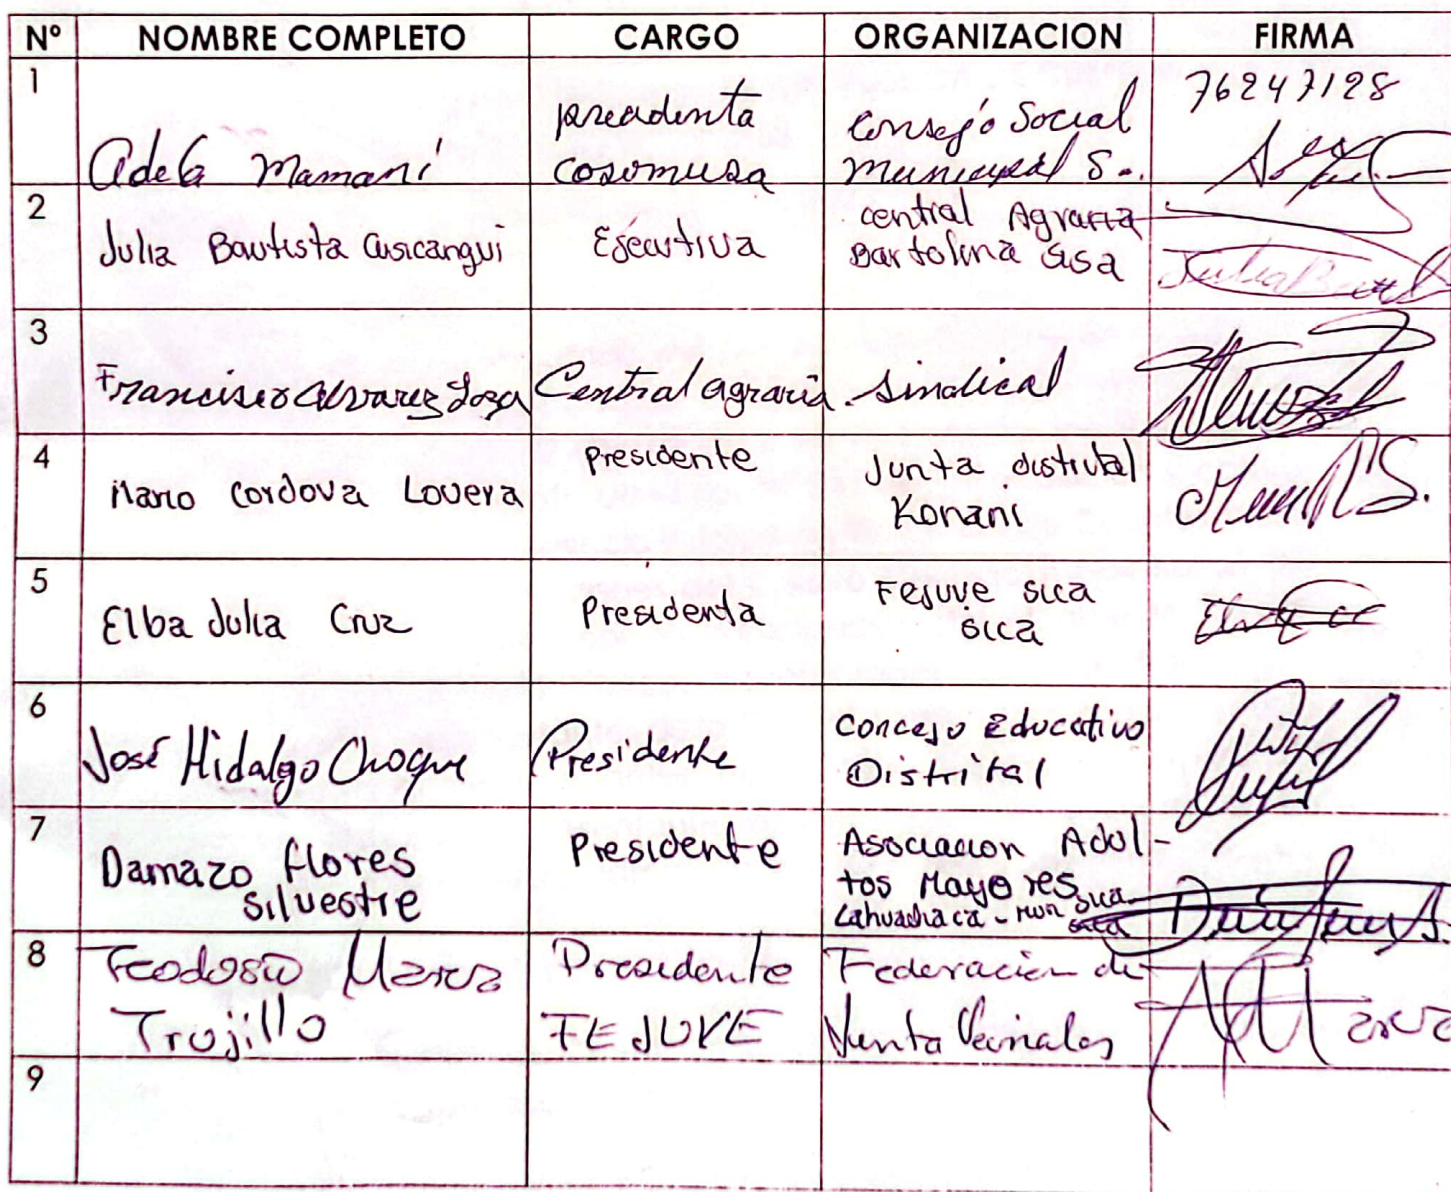 Nº NOMBRE COMPLETO CARGO ORGANIZACION FIRMA
1
Adela Mamani
Presidenta
Cosomusa
Consejo Social
Municipal S..
76247128
2
Julia Bautista Cusicangui
Ejecutiva
central Agraria
Bartolina Sisa
Julia Baut
3
Francisco Alvarez Loza
Central agraria
Sindical
4
Mario Cordova Lovera
Presidente
Junta distrital
Konani
5
Elba Julia Cruz
Presidenta
Fejuve sica
sica
6
José Hidalgo Choque
Presidente
Concejo Educativo
Distrital
7
Damazo flores
silvestre
Presidente
Asociacion Adul-
tos Mayores
Lahuachaca - mun sica
sica
8
Teodosio Marca
Trujillo
Presidente
FEJUVE
Federacion de
Junta Vecinales
9